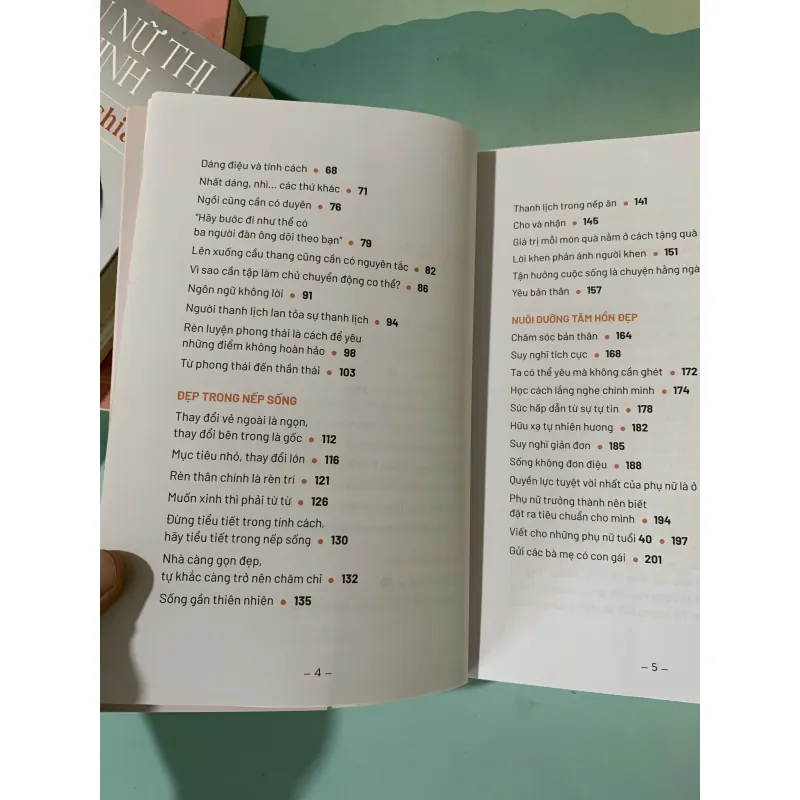 NỮ THỊ
INH
chia
Dáng điệu và tính cách • 68
Nhất dáng, nhì... các thứ khác • 71
Ngồi cũng cần có duyên • 76
"Hãy bước đi như thể có
ba người đàn ông dõi theo bạn" • 79
Lên xuống cầu thang cũng cần có nguyên tắc • 82
Vì sao cần tập làm chủ chuyển động cơ thể? • 86
Ngôn ngữ không lời • 91
Người thanh lịch lan tỏa sự thanh lịch • 94
Rèn luyện phong thái là cách để yêu
những điểm không hoàn hảo • 98
Từ phong thái đến thần thái • 103
ĐẸP TRONG NẾP SỐNG
Thay đổi vẻ ngoài là ngọn,
thay đổi bên trong là gốc • 112
Mục tiêu nhỏ, thay đổi lớn • 116
Rèn thân chính là rèn trí • 121
Muốn xinh thì phải từ từ • 126
Đừng tiểu tiết trong tính cách,
hãy tiểu tiết trong nếp sống • 130
Nhà càng gọn đẹp,
tự khắc càng trở nên chăm chỉ • 132
Sống gần thiên nhiên • 135
– 4 –
Thanh lịch trong nếp ăn • 141
Cho và nhận • 145
Giá trị mỗi món quà nằm ở cách tặng quà
Lời khen phản ánh người khen • 151
Tận hưởng cuộc sống là chuyện hằng ngà
Yêu bản thân • 157
NUÔI DƯỠNG TÂM HỒN ĐẸP
Chăm sóc bản thân • 164
Suy nghĩ tích cực • 168
Ta có thể yêu mà không cần ghét • 172
Học cách lắng nghe chính mình • 174
Sức hấp dẫn từ sự tự tin • 178
Hữu xạ tự nhiên hương • 182
Suy nghĩ giản đơn • 185
Sống không đơn điệu • 188
Quyền lực tuyệt vời nhất của phụ nữ là ở
Phụ nữ trưởng thành nên biết
đặt ra tiêu chuẩn cho mình • 194
Viết cho những phụ nữ tuổi 40 • 197
Gửi các bà mẹ có con gái • 201
– 5 –